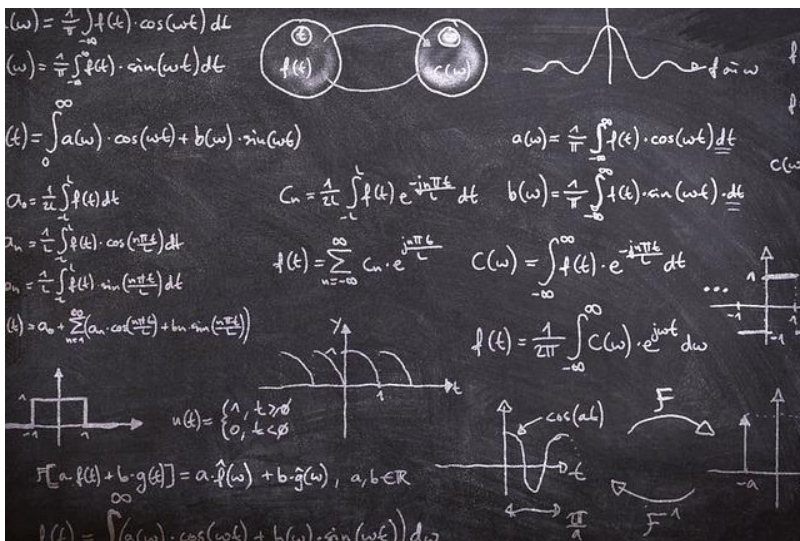 (ω) = 1/π ∫_{-∞}^{∞} f(t)·cos(ωt) dt
(ω) = 1/π ∫_{-∞}^{∞} f(t)·sin(ωt) dt
t
f(t)
ω
c(ω)
f
f
(t) = ∫_{0}^{∞} a(ω)·cos(ωt) + b(ω)·sin(ωt)
a(ω) = 1/π ∫_{-∞}^{∞} f(t)·cos(ωt) dt
c(ω
a₀ = 1/2L ∫_{-L}^{L} f(t) dt
Cₙ = 1/2L ∫_{-L}^{L} f(t) e^{-jnπt/L} dt
b(ω) = 1/π ∫_{-∞}^{∞} f(t)·sin(ωt)·dt
aₙ = 1/L ∫_{-L}^{L} f(t)·cos(nπt/L) dt
f(t) = ∑_{n=-∞}^{∞} Cₙ·e^{jnπt/L}
C(ω) = ∫_{-∞}^{∞} f(t)·e^{-jnπt/L} dt
bₙ = 1/L ∫_{-L}^{L} f(t)·sin(nπt/L) dt
(t) = a₀ + ∑_{n=1}^{∞} (aₙ·cos(nπt/L) + bₙ·sin(nπt/L))
f(t) = 1/2π ∫_{-∞}^{∞} C(ω)·e^{jωt} dω
...
1
-1
1
-1
y
1
1
t
1
-1
1
u(t) = {1, t≥0
{0, t<0
cos(at)
t
π/a
F
F⁻¹
-a
F[a·f(t) + b·g(t)] = a·f̂(ω) + b·ĝ(ω), a,b∈ℝ
f(t) = ∫^{∞} (a(ω)·cos(ωt) + b(ω)·sin(ωt)) dω